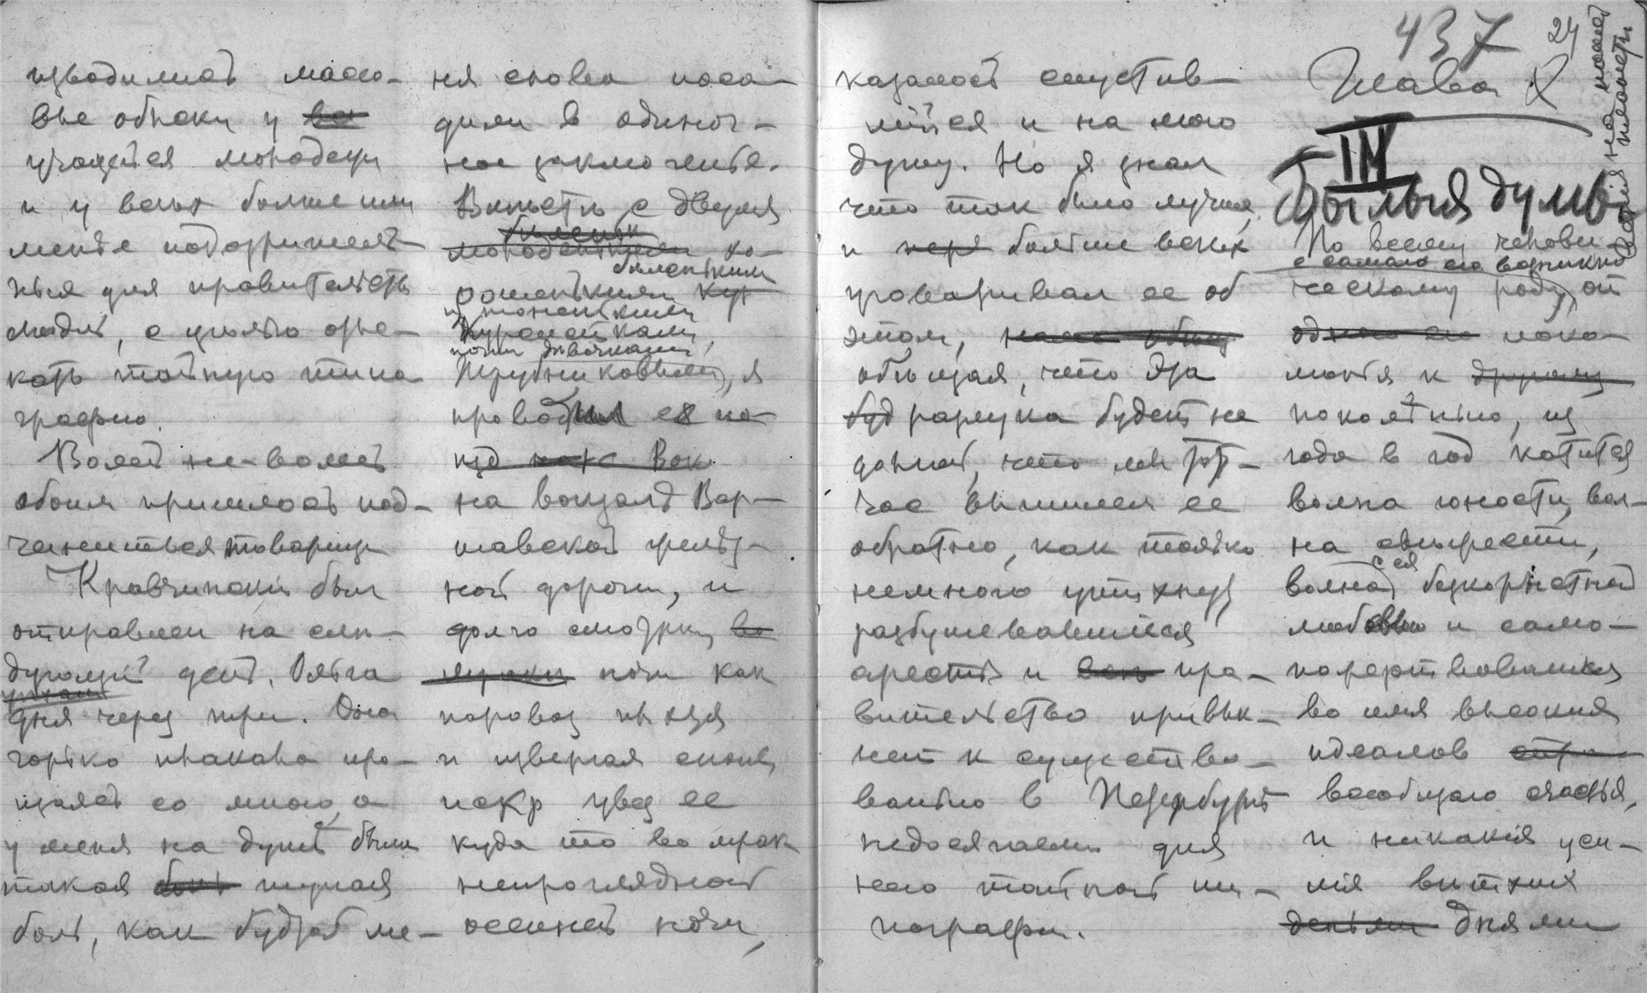 изводились массо-
вые обыски у
учащейся молодежи
и у всех более или
менее подозритель-
ных для правительств
людей, с целью оты-
кать тайную типо-
графию.
Волей-неволей
обоим пришлось под-
чиниться товарищи
Кравчинский был
отправлен на сле-
дующий день. Ольга
дня через три. Она
горько плакала про-
щаясь со мною, а
у меня на душе была
такая жгучая
боль, как будто б ме-
ня снова поса-
дили в одиноч-
ное заключение.
Вместе с двумя
беленькими
и тоненькими
курсистками,
почти девочками,
Трубниковыми, я
проводил её на
на вокзал Вар-
шавской желез-
ной дороги, и
долго смотрел,
как
паровоз пыхтя
и извергая снопы
искр увез ее
куда то во мрак
непроглядной
осенней ночи,
казалось спустив-
шийся и на мою
душу. Но я знал
что так было лучше,
и больше всех
уговаривал ее об
этом,
обещая, что эта
разлука будет не
долгой, что мы тот-
час вышлем ее
обратно, как только
немного утихнут
разбушевавшиеся
аресты и пра-
вительство привык-
нет к существо-
ванию в Петербурге
недосягаемой для
него тайной ти-
пографии.
437 24
Глава X
III
Былыя думы
По всему челове-
с самого его возникно
ческому роду, от
поко-
ления к
поколению, из
года в год катится
волна юности, вол-
на свежести,
волна с ея безкорыстной
любовью и само-
пожертвованием
во имя высоких
идеалов
всеобщаго счастья,
и никакия уси-
лия ветхих
днями